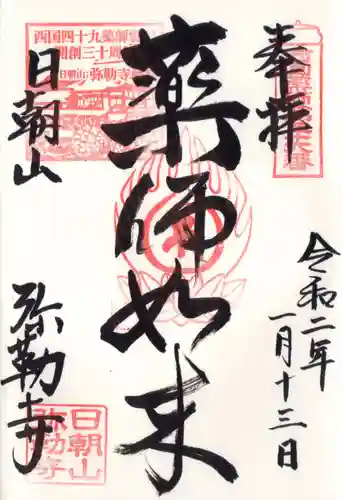 奉拝
令和二年
一月十三日
薬師如来
日朝山
弥勒寺
西国四十九薬師霊
開創三十周
日朝山弥勒寺
日朝山
弥勒寺